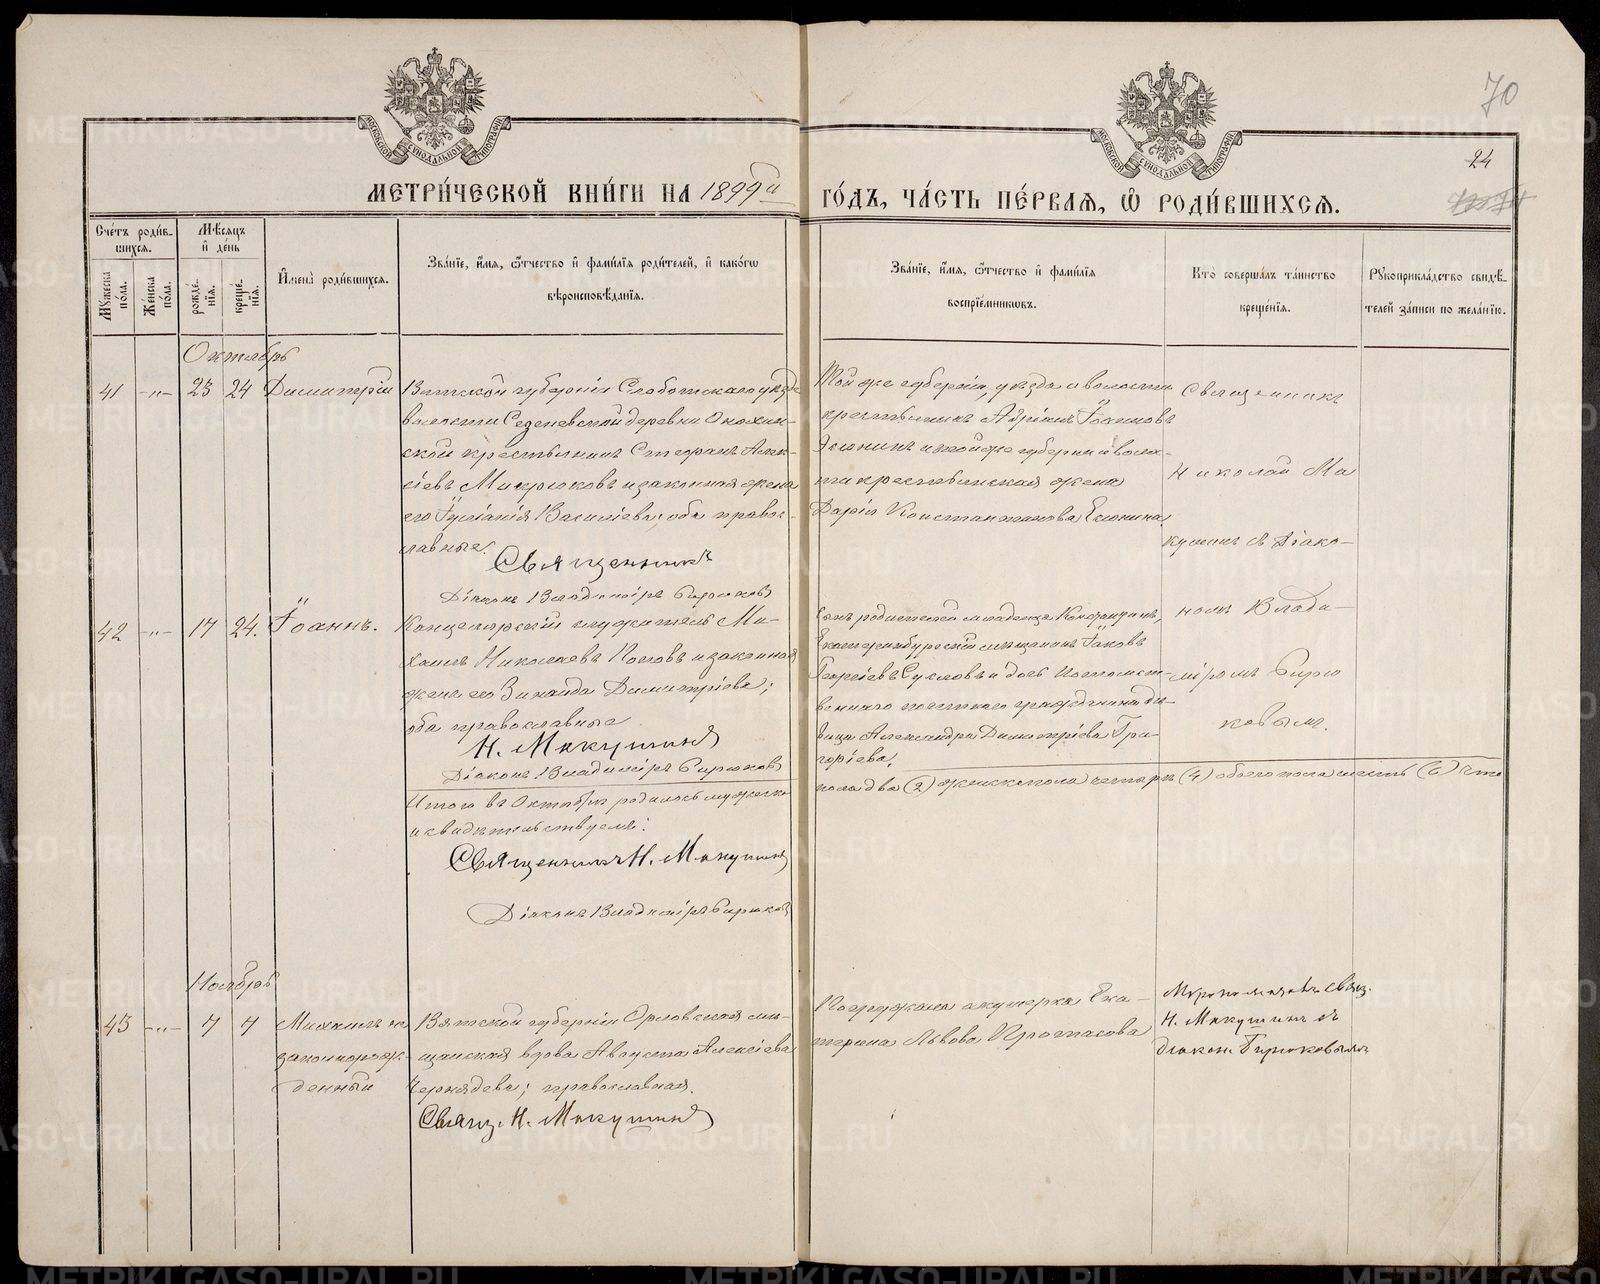 70
24
МОСКОВСКОЙ СѴНОДАЛЬНОЙ ТИПОГРАФІИ
МОСКОВСКОЙ СѴНОДАЛЬНОЙ ТИПОГРАФІИ
МЕТРИ́ЧЕСКОЙ КНИ́ГИ НА 1899й ГО́ДЪ, ЧА́СТЬ ПЕ́РВАЯ, Ѡ РОДИ́ВШИХСЯ.
Сче́тъ роди́вшихся.
Мꙋ́жеска по́ла.
Же́нска по́ла.
Мѣ́сяцъ и де́нь
рожде́нїя.
креще́нїя.
И҆мена̀ роди́вшихся.
Зва́нїе, и҆́мя, ѻ҆́тчество и҆ фами́лїя роди́телей, и҆ како́гѡ
вѣроисповѣ́данїя.
Зва́нїе, и҆́мя, ѻ҆́тчество и҆ фами́лїя
воспрїе́мникѡвъ.
Кто̀ соверша́лъ та́инство
креще́нїя.
Рꙋкоприкла́дство свидѣ́-
телей за́писи по жела́нїю.
Октябрь
41 -„- 23 24 Димитрій
Вятской губерніи Слободскаго уезда
волости Сезеневской деревни
крестьянинъ Стефанъ Алек-
сіевъ Микрюковъ и законная жена
его Іуліанія Василіева, оба правос-
лавные.
Священникъ
Діаконъ Владиміръ Бирюковъ
Той же губерніи, уезда и волости
крестьянинъ Адріанъ Іоанновъ
и той же губерніи и волос-
ти крестьянская жена
Дарія Константинова
Священникъ
Николай Ма
кушинъ съ Діако-
номъ Влади-
міромъ Бирю
ковымъ.
42 -„- 17 24. Іоаннъ.
Канцелярскій служитель Ми-
хаилъ Николаевъ Поповъ и законная
жена его Зинаида Димитріева;
оба православные
Н. Макушинъ
Діаконъ Владиміръ Бирюковъ
Екатеринбургскій мещанинъ Іаковъ
Георгіевъ Сусловъ и дочь потомст-
веннаго почетнаго гражданина де-
вица Александра Димитріева Гри-
горіева.
Итого въ Октябре родилось мужеска
пола два (2) женска пола четыре (4) обоего пола шесть (6) Что
и свидетельствуемъ:
Священникъ Н. Макушинъ
Діаконъ Владиміръ Бирюковъ
Ноябрь
43 -„- 7 7 Михаилъ не
законнорож-
денный
Вятской губерніи Орловская ме-
щанская вдова Августа Алексіева
православная.
Свящ. Н. Макушинъ
акушерка Ека-
терина Львова Протасова
свящ.
Н. Макушинъ съ
діакон. Бирюковымъ